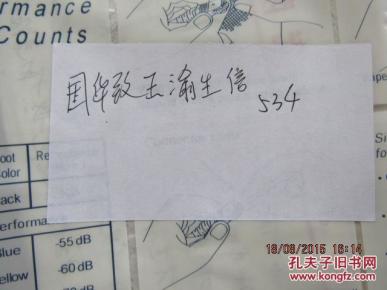 rmance
Counts
国华致王渝生信
534
oot
Color
Re
ack
Performa
Blue
-55 dB
ellow
-60 dB
Si
18/08/2015 16:14
孔夫子旧书网
www.kongfz.com